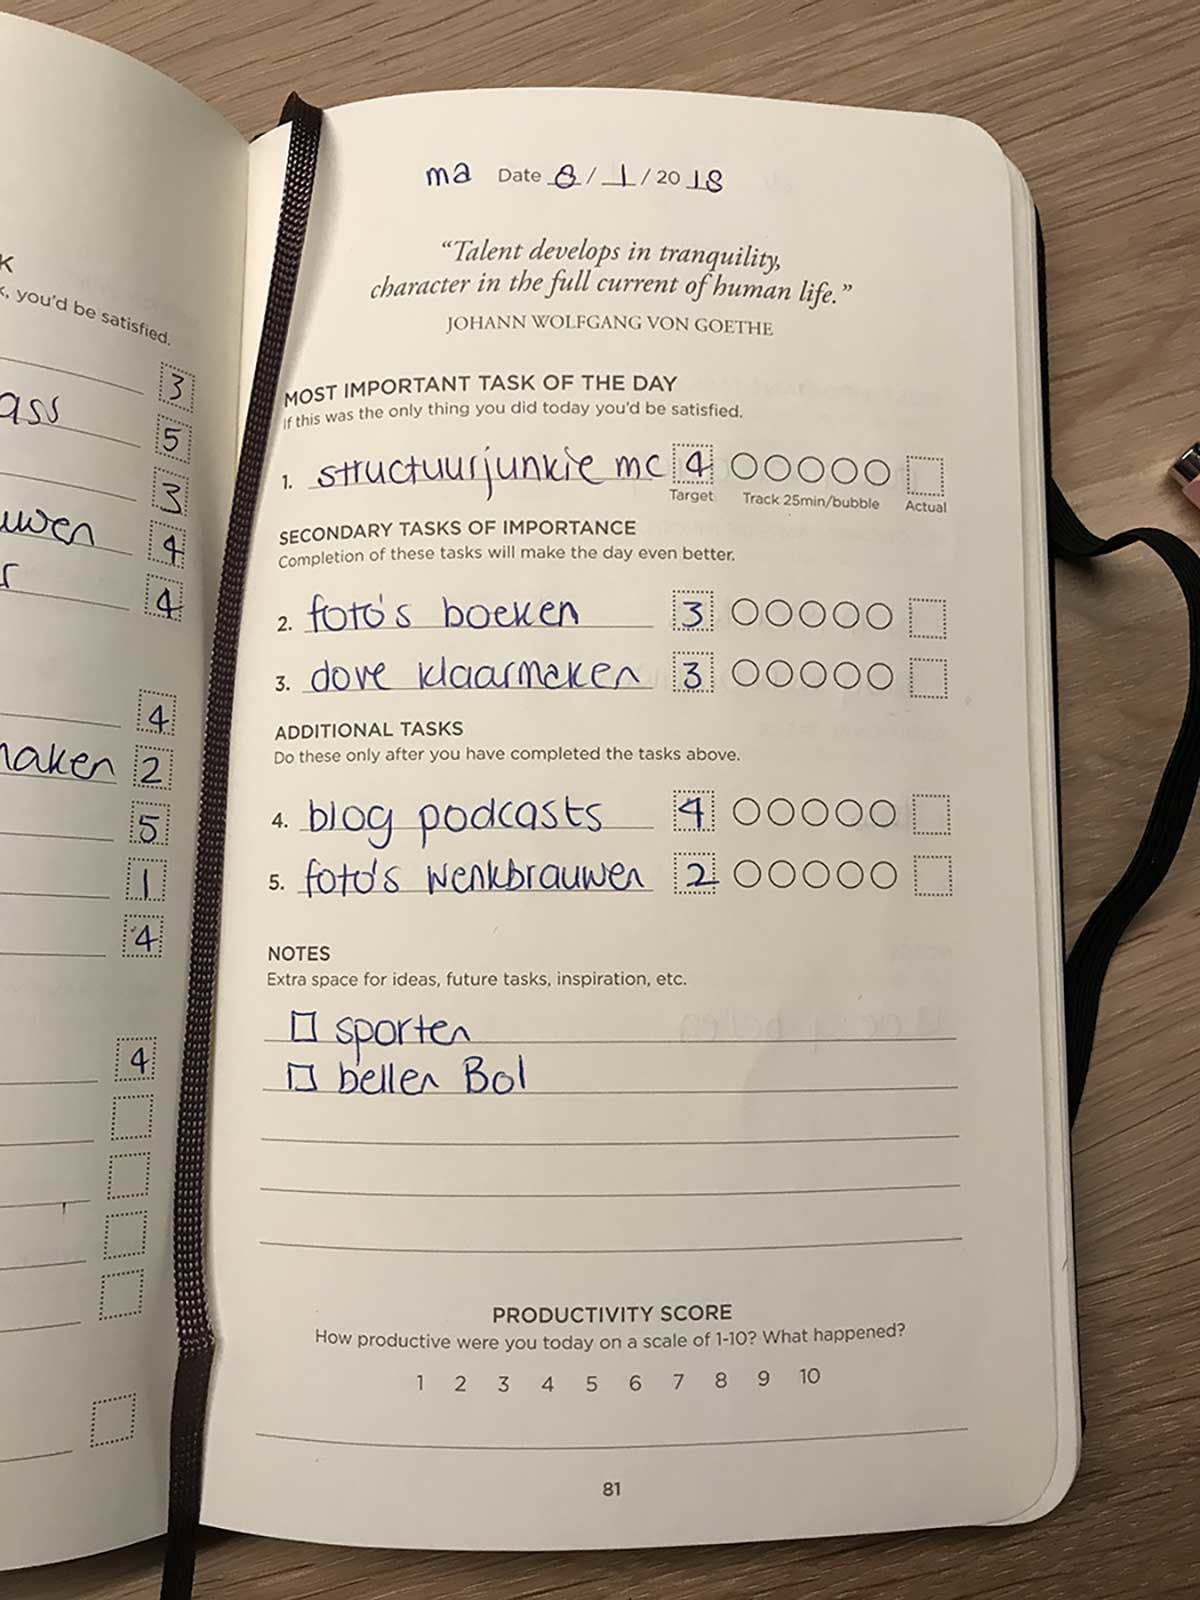 K
k, you'd be satisfied.
3
ass 5
3
uwen 4
r 4
4
maken 2
5
1
4
4
ma Date 8/1/2018
“Talent develops in tranquility,
character in the full current of human life.”
JOHANN WOLFGANG VON GOETHE
MOST IMPORTANT TASK OF THE DAY
If this was the only thing you did today you'd be satisfied.
1. structuurjunkie mc 4
Target Track 25min/bubble Actual
SECONDARY TASKS OF IMPORTANCE
Completion of these tasks will make the day even better.
2. foto's boeken 3
3. dove klaarmaken 3
ADDITIONAL TASKS
Do these only after you have completed the tasks above.
4. blog podcasts 4
5. foto's wenkbrauwen 2
NOTES
Extra space for ideas, future tasks, inspiration, etc.
sporten
bellen Bol
PRODUCTIVITY SCORE
How productive were you today on a scale of 1-10? What happened?
1 2 3 4 5 6 7 8 9 10
81